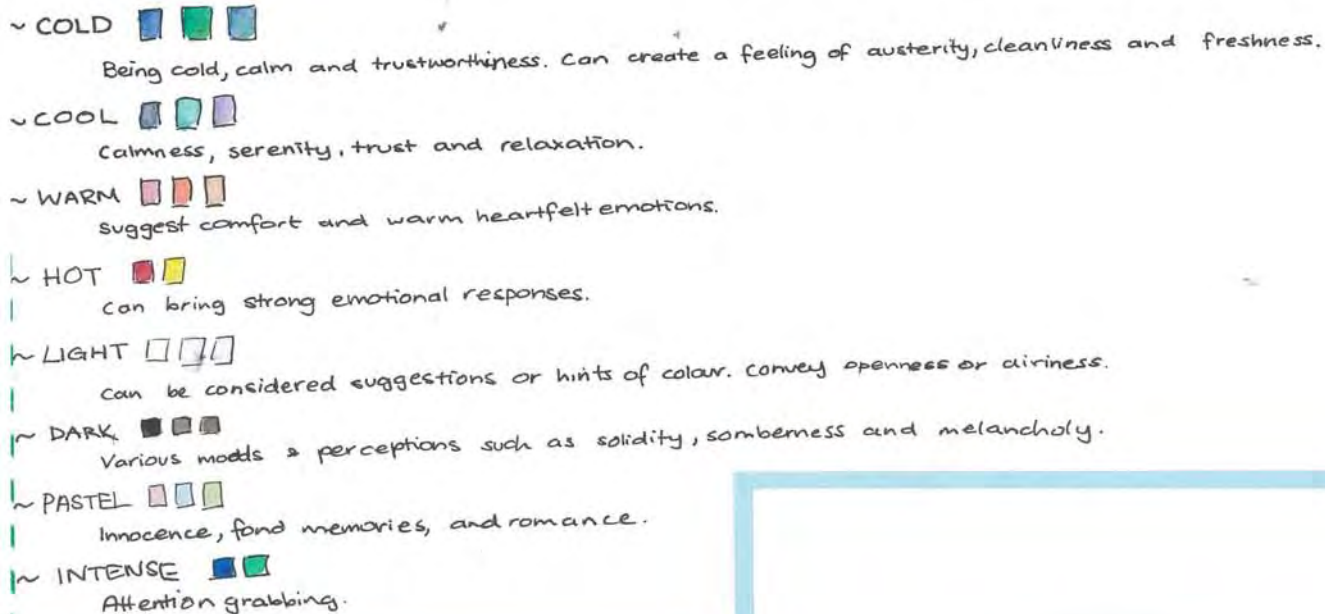 ~ COLD
Being cold, calm and trustworthiness. Can create a feeling of austerity, cleanliness and freshness.
~ COOL
Calmness, serenity, trust and relaxation.
~ WARM
suggest comfort and warm heartfelt emotions.
~ HOT
can bring strong emotional responses.
~ LIGHT
can be considered suggestions or hints of colour. convey openness or airiness.
~ DARK
Various moods & perceptions such as solidity, somberness and melancholy.
~ PASTEL
Innocence, fond memories, and romance.
~ INTENSE
Attention grabbing.